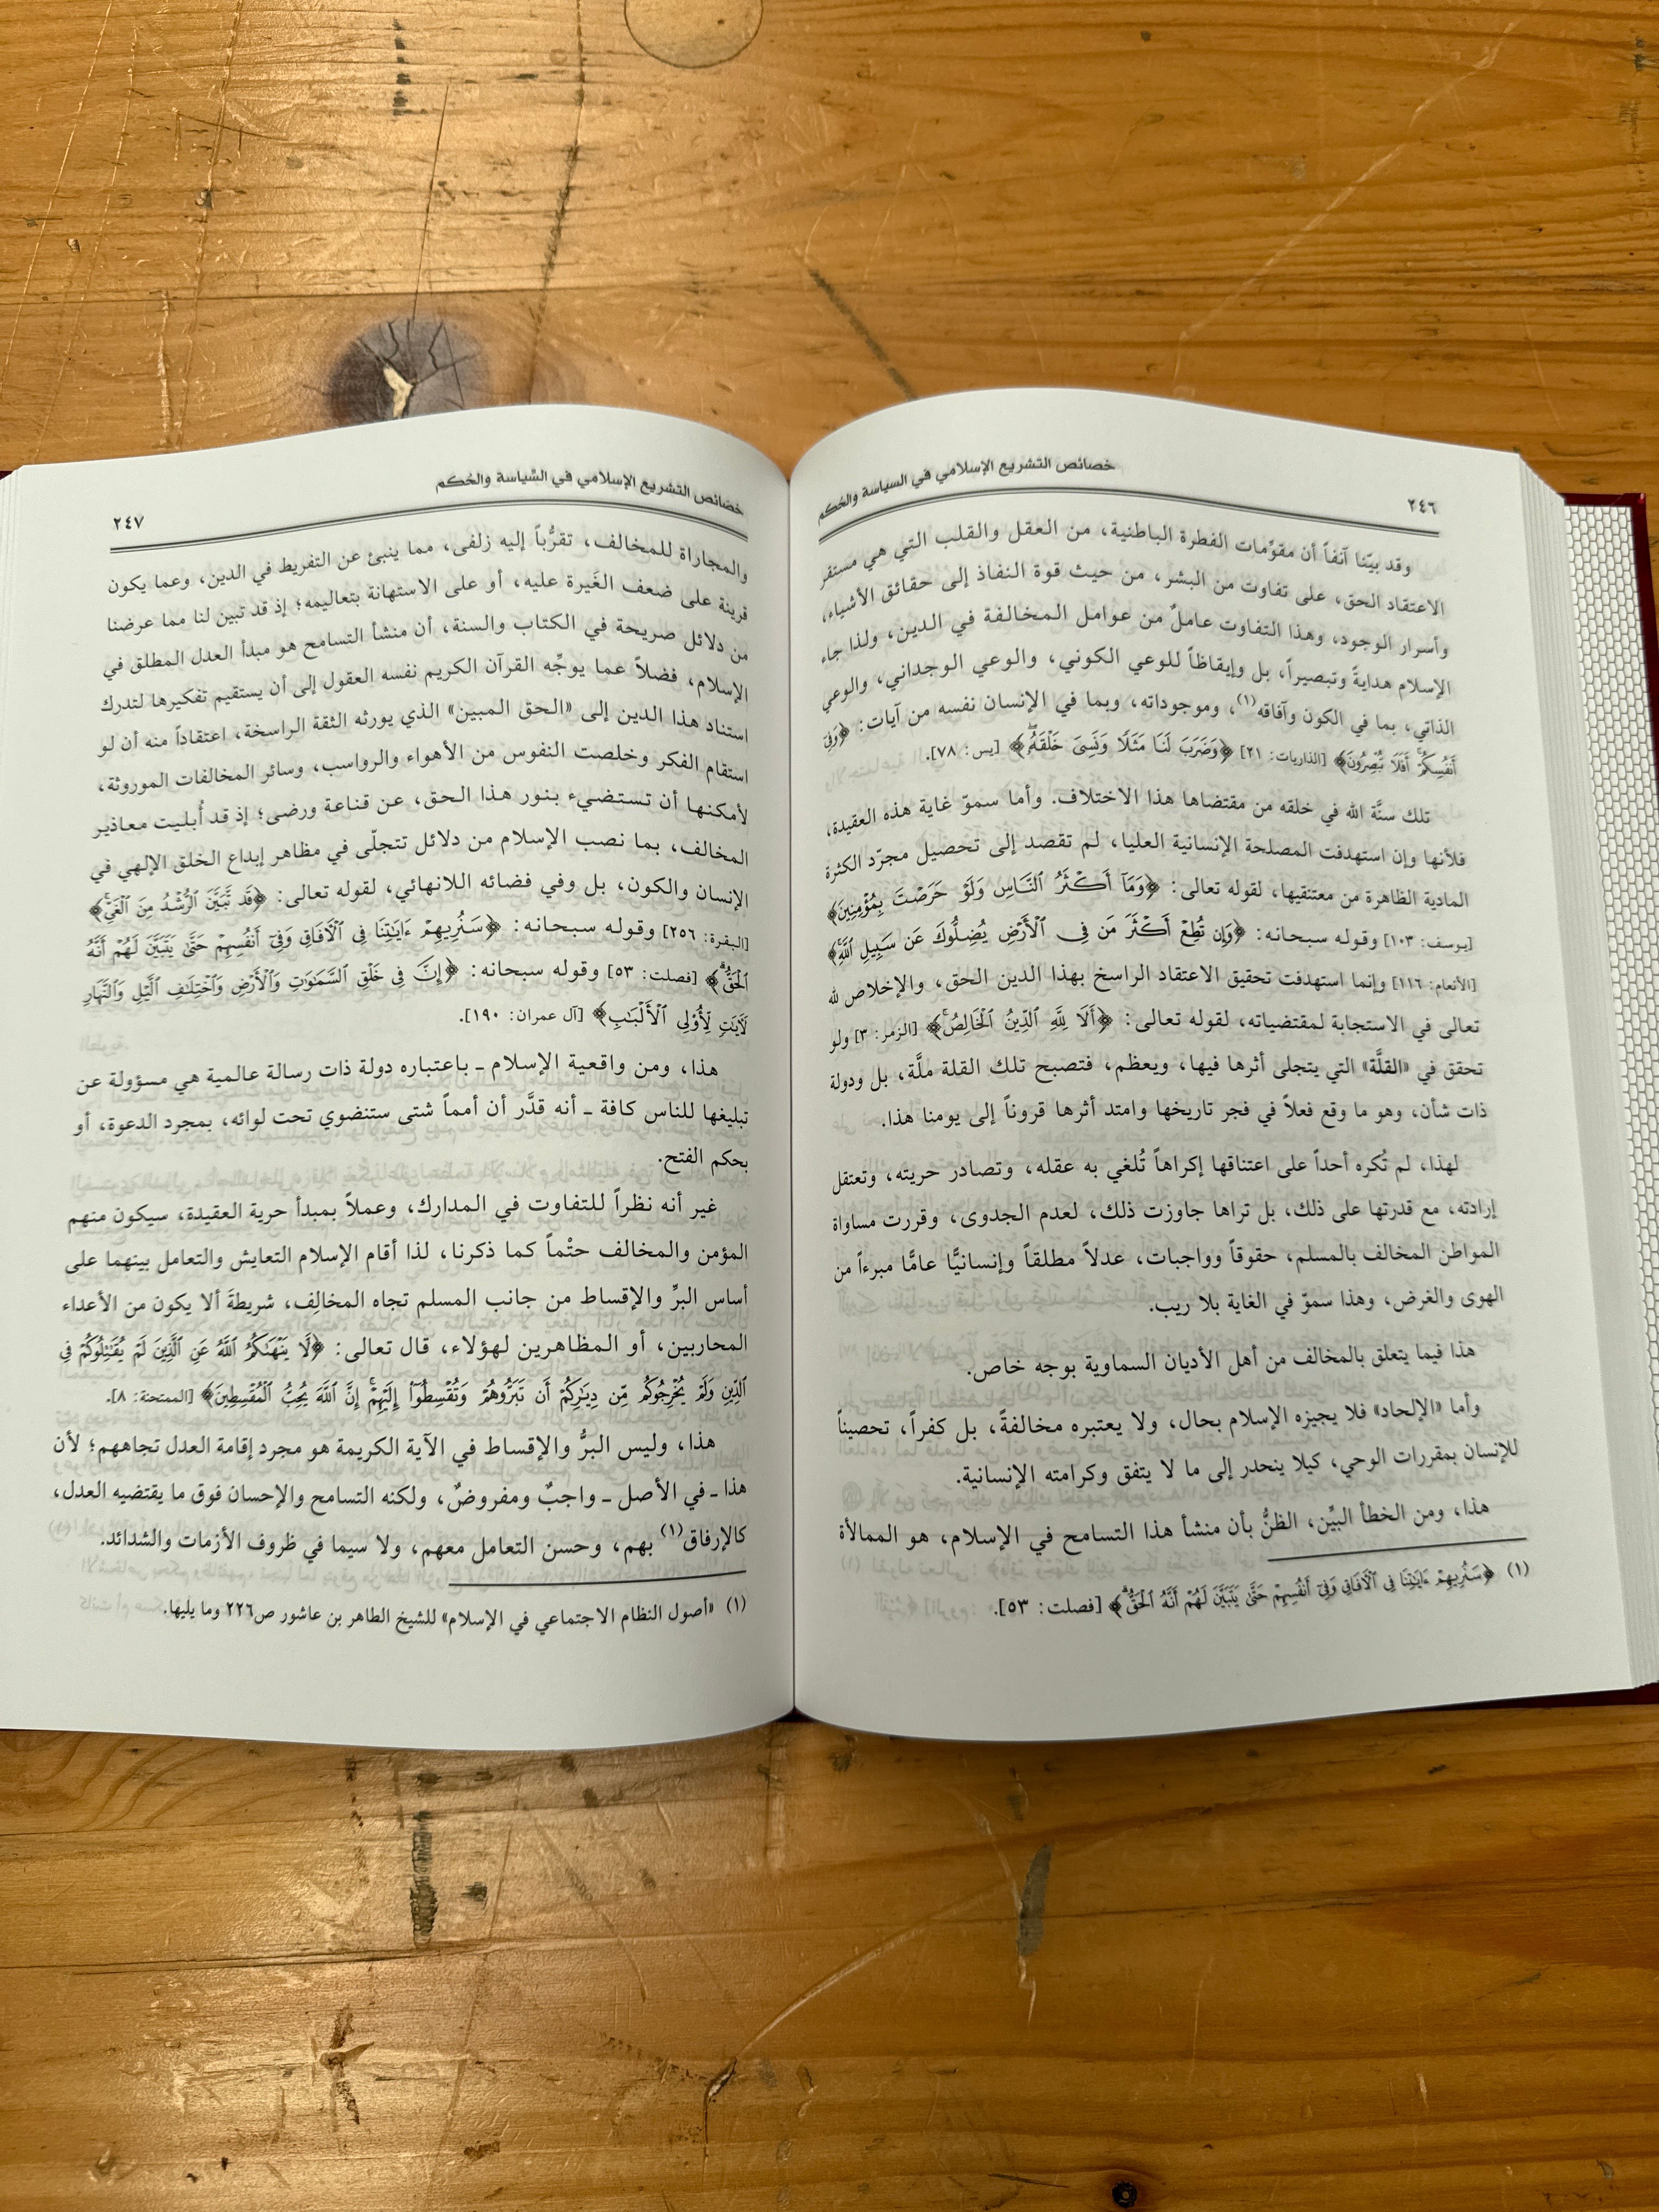 ٢٤٦
خصائص التشريع الإسلامي في السياسة والحكم
وقد بيّنّا آنفاً أن مقوِّمات الفطرة الباطنية، من العقل والقلب التي هي مستقر
الاعتقاد الحق، على تفاوت من البشر، من حيث قوة النفاذ إلى حقائق الأشياء،
وأسرار الوجود، وهذا التفاوت عاملٌ من عوامل المخالفة في الدين، ولذا جاء
الإسلام هدايةً وتبصيراً، بل وإيقاظاً للوعي الكوني، والوعي الوجداني، والوعي
الذاتي، بما في الكون وآفاقه(١)، وموجوداته، وبما في الإنسان نفسه من آيات: ﴿وَفِىٓ
أَنفُسِكُمْ ۚ أَفَلَا تُبْصِرُونَ﴾ [الذاريات: ٢١] ﴿وَضَرَبَ لَنَا مَثَلًا وَنَسِىَ خَلْقَهُۥ ۖ﴾ [يس: ٧٨].
تلك سنَّة الله في خلقه من مقتضاها هذا الاختلاف. وأما سموّ غاية هذه العقيدة،
فلأنها وإن استهدفت المصلحة الإنسانية العليا، لم تقصد إلى تحصيل مجرّد الكثرة
المادية الظاهرة من معتنقيها، لقوله تعالى: ﴿وَمَآ أَكْثَرُ ٱلنَّاسِ وَلَوْ حَرَصْتَ بِمُؤْمِنِينَ﴾
[يوسف: ١٠٣] وقوله سبحانه: ﴿وَإِن تُطِعْ أَكْثَرَ مَن فِى ٱلْأَرْضِ يُضِلُّوكَ عَن سَبِيلِ ٱللَّهِ ۚ﴾
[الأنعام: ١١٦] وإنما استهدفت تحقيق الاعتقاد الراسخ بهذا الدين الحق، والإخلاص لله
تعالى في الاستجابة لمقتضياته، لقوله تعالى: ﴿أَلَا لِلَّهِ ٱلدِّينُ ٱلْخَالِصُ ۚ﴾ [الزمر: ٣] ولو
تحقق في «القلَّة» التي يتجلى أثرها فيها، ويعظم، فتصبح تلك القلة ملَّة، بل ودولة
ذات شأن، وهو ما وقع فعلاً في فجر تاريخها وامتد أثرها قروناً إلى يومنا هذا.
لهذا، لم تُكره أحداً على اعتناقها إكراهاً تُلغي به عقله، وتصادر حريته، وتعتقل
إرادته، مع قدرتها على ذلك، بل تراها جاوزت ذلك، لعدم الجدوى، وقررت مساواة
المواطن المخالف بالمسلم، حقوقاً وواجبات، عدلاً مطلقاً وإنسانيًّا عامًّا مبرءاً من
الهوى والغرض، وهذا سموّ في الغاية بلا ريب.
هذا فيما يتعلق بالمخالف من أهل الأديان السماوية بوجه خاص.
وأما «الإلحاد» فلا يجيزه الإسلام بحال، ولا يعتبره مخالفةً، بل كفراً، تحصيناً
للإنسان بمقررات الوحي، كيلا ينحدر إلى ما لا يتفق وكرامته الإنسانية.
هذا، ومن الخطأ البيِّن، الظنُّ بأن منشأ هذا التسامح في الإسلام، هو الممالأة
(١) ﴿سَنُرِيهِمْ ءَايَٰتِنَا فِى ٱلْءَافَاقِ وَفِىٓ أَنفُسِهِمْ حَتَّىٰ يَتَبَيَّنَ لَهُمْ أَنَّهُ ٱلْحَقُّ ۗ﴾ [فصلت: ٥٣].
خصائص التشريع الإسلامي في السِّياسة والحُكم
٢٤٧
والمجاراة للمخالف، تقرُّباً إليه زلفى، مما ينبئ عن التفريط في الدين، وعما يكون
قرينة على ضعف الغَيرة عليه، أو على الاستهانة بتعاليمه؛ إذ قد تبين لنا مما عرضنا
من دلائل صريحة في الكتاب والسنة، أن منشأ التسامح هو مبدأ العدل المطلق في
الإسلام، فضلاً عما يوجِّه القرآن الكريم نفسه العقول إلى أن يستقيم تفكيرها لتدرك
استناد هذا الدين إلى «الحق المبين» الذي يورثه الثقة الراسخة، اعتقاداً منه أن لو
استقام الفكر وخلصت النفوس من الأهواء والرواسب، وسائر المخالفات الموروثة،
لأمكنها أن تستضيء بنور هذا الحق، عن قناعة ورضى؛ إذ قد أُبليت معاذير
المخالف، بما نصب الإسلام من دلائل تتجلّى في مظاهر إبداع الخلق الإلهي في
الإنسان والكون، بل وفي فضائه اللانهائي، لقوله تعالى: ﴿قَد تَّبَيَّنَ ٱلرُّشْدُ مِنَ ٱلْغَىِّ ۚ﴾
[البقرة: ٢٥٦] وقوله سبحانه: ﴿سَنُرِيهِمْ ءَايَٰتِنَا فِى ٱلْءَافَاقِ وَفِىٓ أَنفُسِهِمْ حَتَّىٰ يَتَبَيَّنَ لَهُمْ أَنَّهُ
ٱلْحَقُّ ۗ﴾ [فصلت: ٥٣] وقوله سبحانه: ﴿إِنَّ فِى خَلْقِ ٱلسَّمَٰوَٰتِ وَٱلْأَرْضِ وَٱخْتِلَٰفِ ٱلَّيْلِ وَٱلنَّهَارِ
لَءَايَٰتٍ لِّأُو۟لِى ٱلْأَلْبَٰبِ﴾ [آل عمران: ١٩٠].
هذا، ومن واقعية الإسلام ـ باعتباره دولة ذات رسالة عالمية هي مسؤولة عن
تبليغها للناس كافة ـ أنه قدَّر أن أمماً شتى ستنضوي تحت لوائه، بمجرد الدعوة، أو
بحكم الفتح.
غير أنه نظراً للتفاوت في المدارك، وعملاً بمبدأ حرية العقيدة، سيكون منهم
المؤمن والمخالف حتْماً كما ذكرنا، لذا أقام الإسلام التعايش والتعامل بينهما على
أساس البرِّ والإقساط من جانب المسلم تجاه المخالِف، شريطةَ ألا يكون من الأعداء
المحاربين، أو المظاهرين لهؤلاء، قال تعالى: ﴿لَّا يَنْهَىٰكُمُ ٱللَّهُ عَنِ ٱلَّذِينَ لَمْ يُقَٰتِلُوكُمْ فِى
ٱلدِّينِ وَلَمْ يُخْرِجُوكُم مِّن دِيَٰرِكُمْ أَن تَبَرُّوهُمْ وَتُقْسِطُوٓا۟ إِلَيْهِمْ ۚ إِنَّ ٱللَّهَ يُحِبُّ ٱلْمُقْسِطِينَ﴾ [الممتحنة: ٨].
هذا، وليس البرُّ والإقساط في الآية الكريمة هو مجرد إقامة العدل تجاههم؛ لأن
هذا ـ في الأصل ـ واجبٌ ومفروضٌ، ولكنه التسامح والإحسان فوق ما يقتضيه العدل،
كالإرفاق(١) بهم، وحسن التعامل معهم، ولا سيما في ظروف الأزمات والشدائد.
(١) «أصول النظام الاجتماعي في الإسلام» للشيخ الطاهر بن عاشور ص٢٢٦ وما يليها.